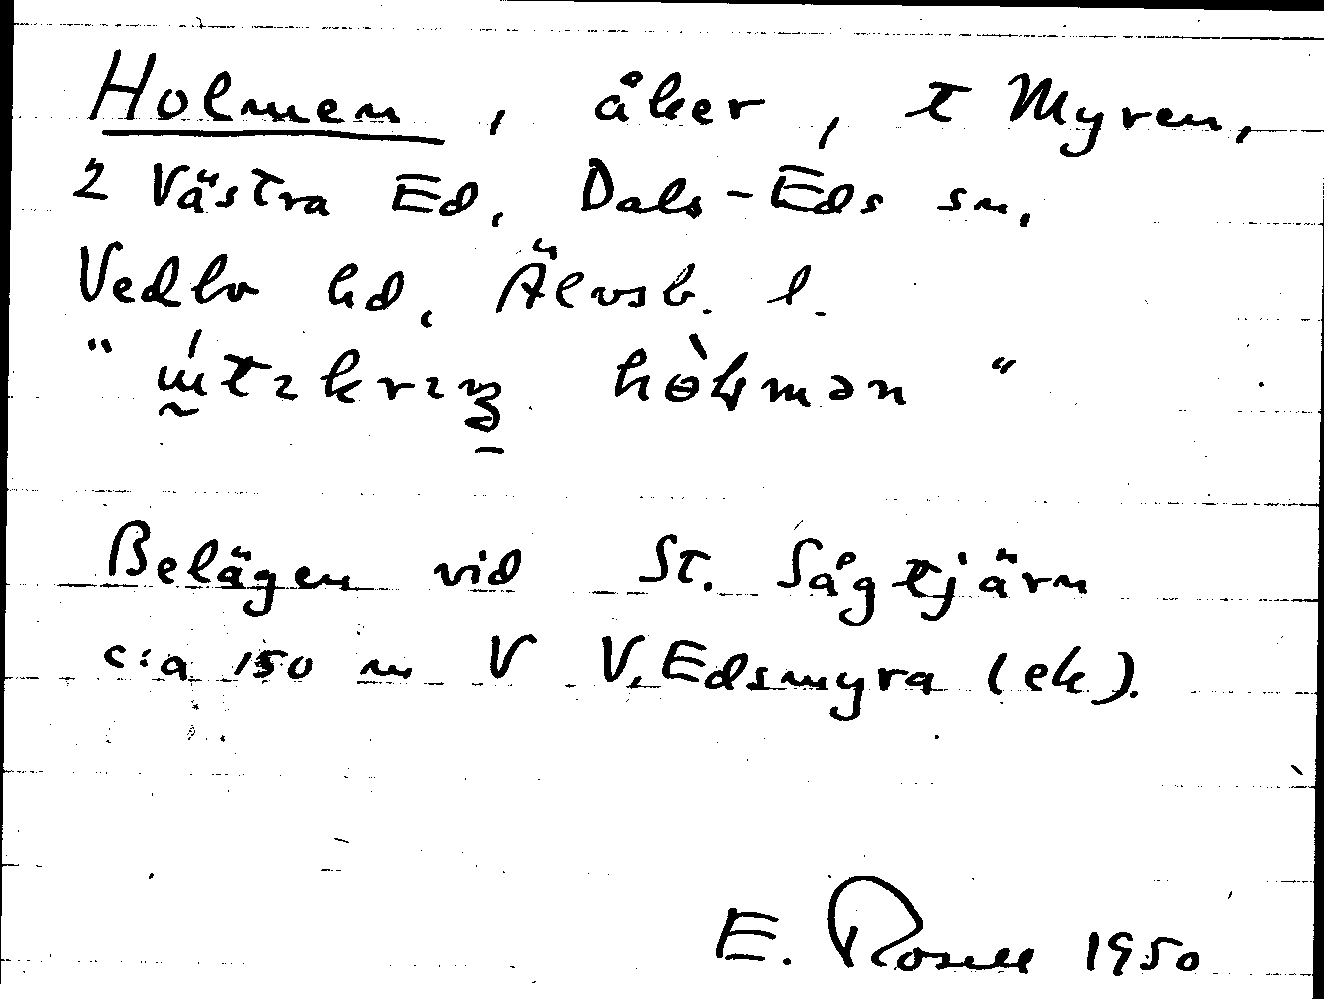 Holmen, åker, t Myren,
2 Västra Ed, Dals-Eds sn,
Vedbo hd, Älvsb. l.
" hòɫmən "
Belägen vid St. Sågtjärn
c:a 150 m V V. Edsmyra (ek).
E. Rosell 1950